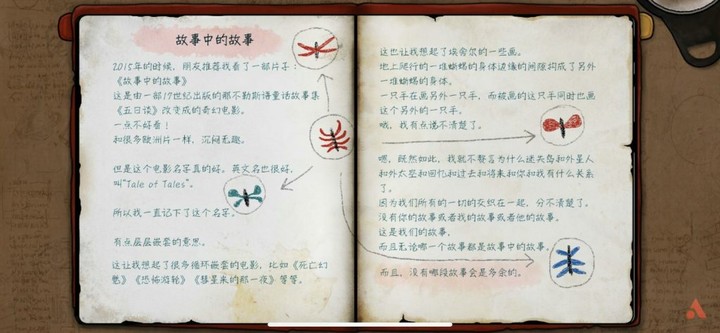 故事中的故事
2015年的时候，朋友推荐我看了一部片子：
《故事中的故事》
这是由一部17世纪出版的那不勒斯语童话故事集
《五日谈》改变成的奇幻电影。
一点不好看！
和很多欧洲片一样，沉闷无趣。
但是这个电影名字真的好。英文名也很好，
叫“Tale of Tales”。
所以我一直记下了这个名字。
有点层层嵌套的意思。
这让我想起了很多循环嵌套的电影，比如《死亡幻
觉》《恐怖游轮》《彗星来的那一夜》等等。
这也让我想起了埃舍尔的一些画。
地上爬行的一堆蜥蜴的身体边缘的间隙构成了另外
一堆蜥蜴的身体。
一只手在画另外一只手，而被画的这只手同时也画
这个另外的一只手。
哦，我有点说不清楚了。
嗯，既然如此，我就不赘言为什么迷失岛和外星人
和外太空和回忆和过去和将来和你和我有什么关系
了。
因为我们所有的一切的交织在一起，分不清楚了。
没有你的故事或者我的故事或者他的故事。
这是我们的故事。
而且无论哪一个故事都是故事中的故事。
而且，没有哪段故事会是多余的。